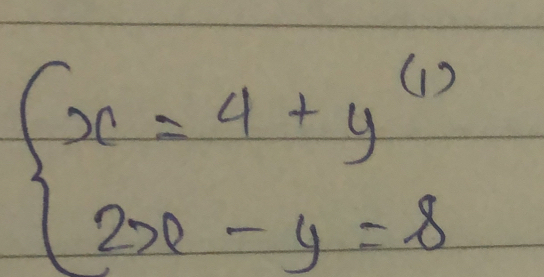 x = 4 + y (1)
2x - y = 8